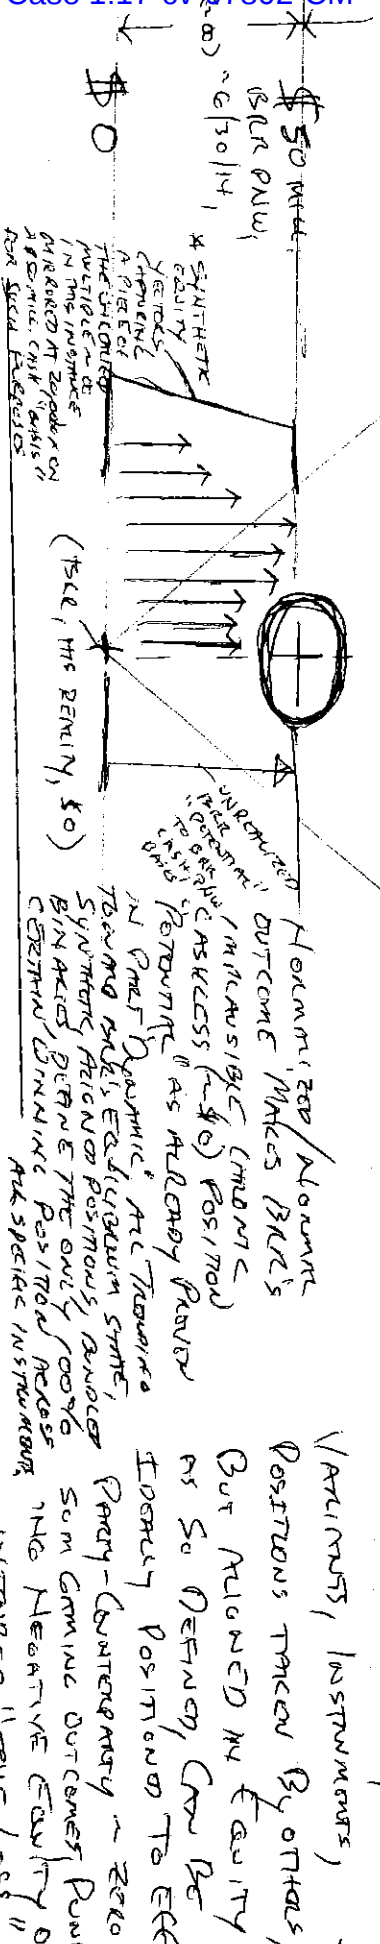 Case 1:17-cv-07302-CM
$50 MILL.
BRR PNW,
~6/30/14,
$0
* SYNTHETIC
EQUITY
VECTORS
CAPTURING
A PIECE OF
THE
MULTIPLE ~ ∞
IN THIS INSTANCE
MIRRORED AT
CASH "BASIS"
FOR SUCH PURPOSES
(BRR, HIS REALITY, $0)
UNREALIZED
BRR
"POTENTIAL"
TO BRR PNW
CASH
BASIS
NORMALIZED/NORMAL
OUTCOME MAKES BRR'S
IMPLAUSIBLE CHRONIC
CASHLESS (~$0) POSITION
"POTENTIAL" AS ALREADY PROVEN
IN PART "DYNAMIC" ALL TRENDING
TOWARD BRR'S EQUILIBRIUM STATE,
SYNTHETIC ALIGNED POSITIONS, BUNDLED
BINARIES, THE ONLY 100%
CERTAIN WINNING POSITION ACROSS
ALL SPECIAL INSTRUMENTS,
VARIANTS, INSTRUMENTS,
POSITIONS TAKEN BY OTHERS,
BUT ALIGNED IN EQUITY
AS SO DEFINED, CAN BE
IDEALLY POSITIONED TO
PARTY-COUNTERPARTY ~ ZERO
SUM GAMING OUTCOMES,
NEGATIVE EQUITY